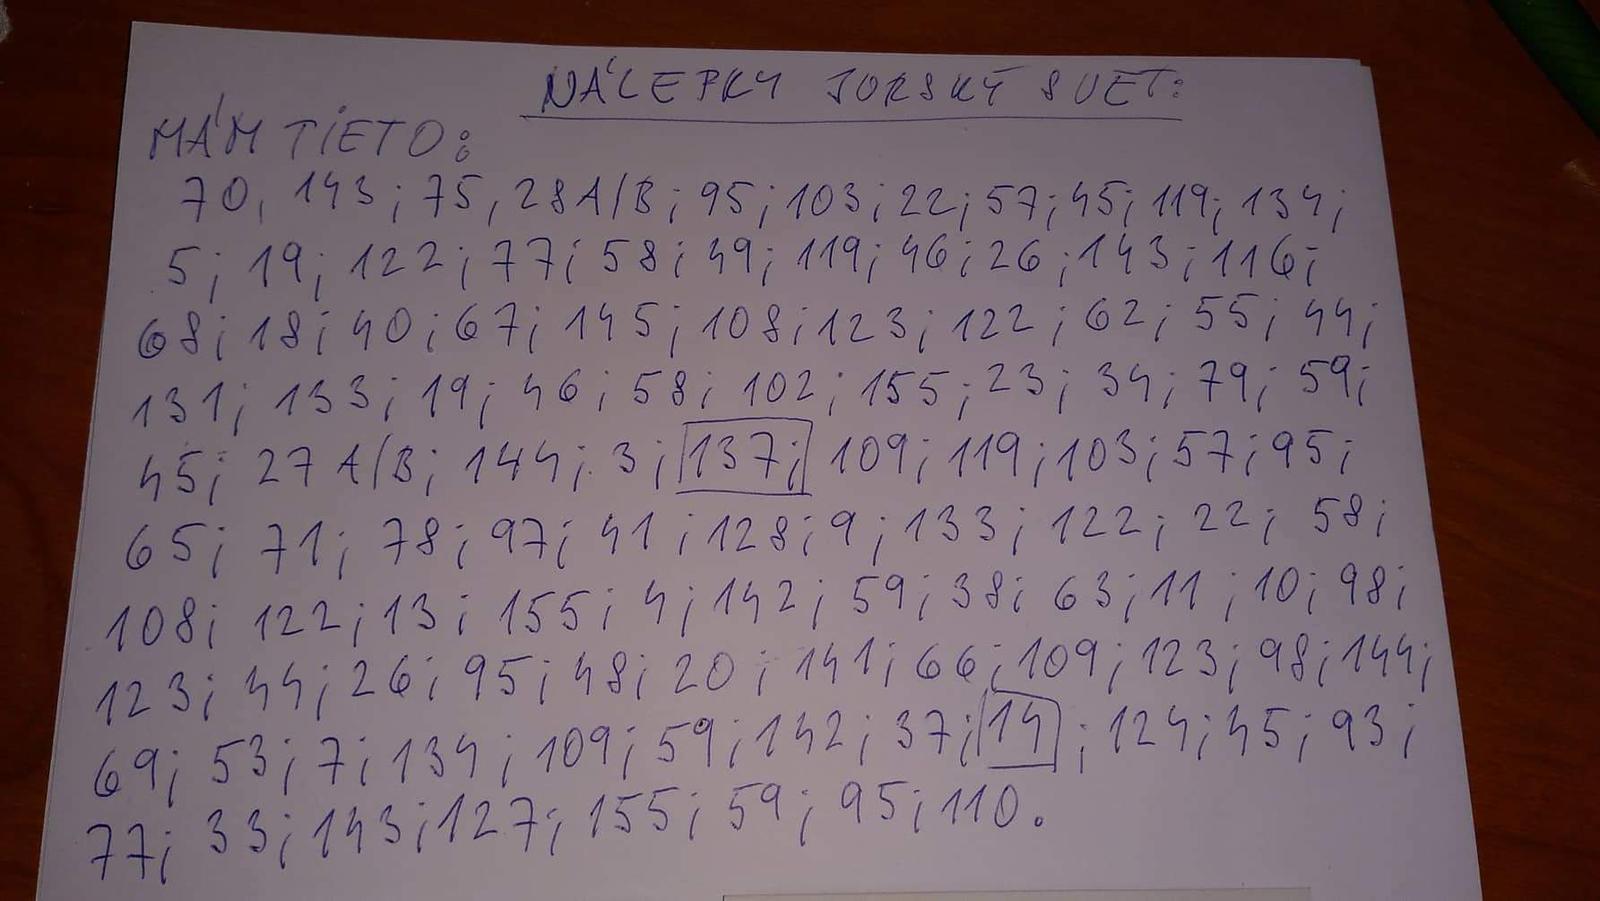 NÁLEPKY JURSKÝ SVET:
MÁM TIETO:
70, 143; 75, 28A/B; 95; 103; 22; 57; 45; 119; 134;
5; 19; 122; 77; 58; 49; 119; 46; 26; 143; 116;
68; 18; 40; 67; 145; 108; 123; 122; 62; 55; 44;
131; 133; 19; 46; 58; 102; 155; 23; 34; 79; 59;
45; 27A/B; 144; 3; 137; 109; 119; 103; 57; 95;
65; 71; 78; 97; 41; 128; 9; 133; 122; 22; 58;
108; 122; 13; 155; 4; 142; 59; 38; 63; 11; 10; 98;
123; 44; 26; 95; 48; 20; 141; 66; 109; 123; 98; 144;
69; 53; 7; 134; 109; 59; 142; 37; 14; 124; 45; 93;
77; 33; 143; 127; 155; 59; 95; 110.